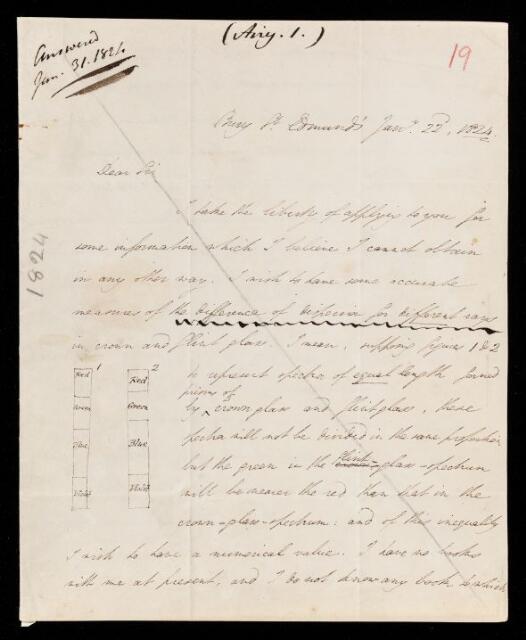 (Airy. 1.)
19
Answered
Jan. 31. 1824
Bury St. Edmund's Jany. 22d, 1824.
Dear Sir
I take the liberty of applying to you for
some information which I believe I cannot obtain
in any other way. I wish to have some accurate
measures of the difference of dispersion for different rays
in crown and flint glass. I mean, supposing figures 1 & 2
to represent spectra of equal length formed
by prisms of crown glass and flint glass, these
spectra will not be divided in the same proportion
but the green in the flint-glass-spectrum
will be nearer the red than that in the
crown-glass-spectrum: and of this inequality
I wish to have a numerical value. I have no books
with me at present, and I do not know any book to which
1
Red
Green
Blue
Violet
2
Red
Green
Blue
Violet
1824